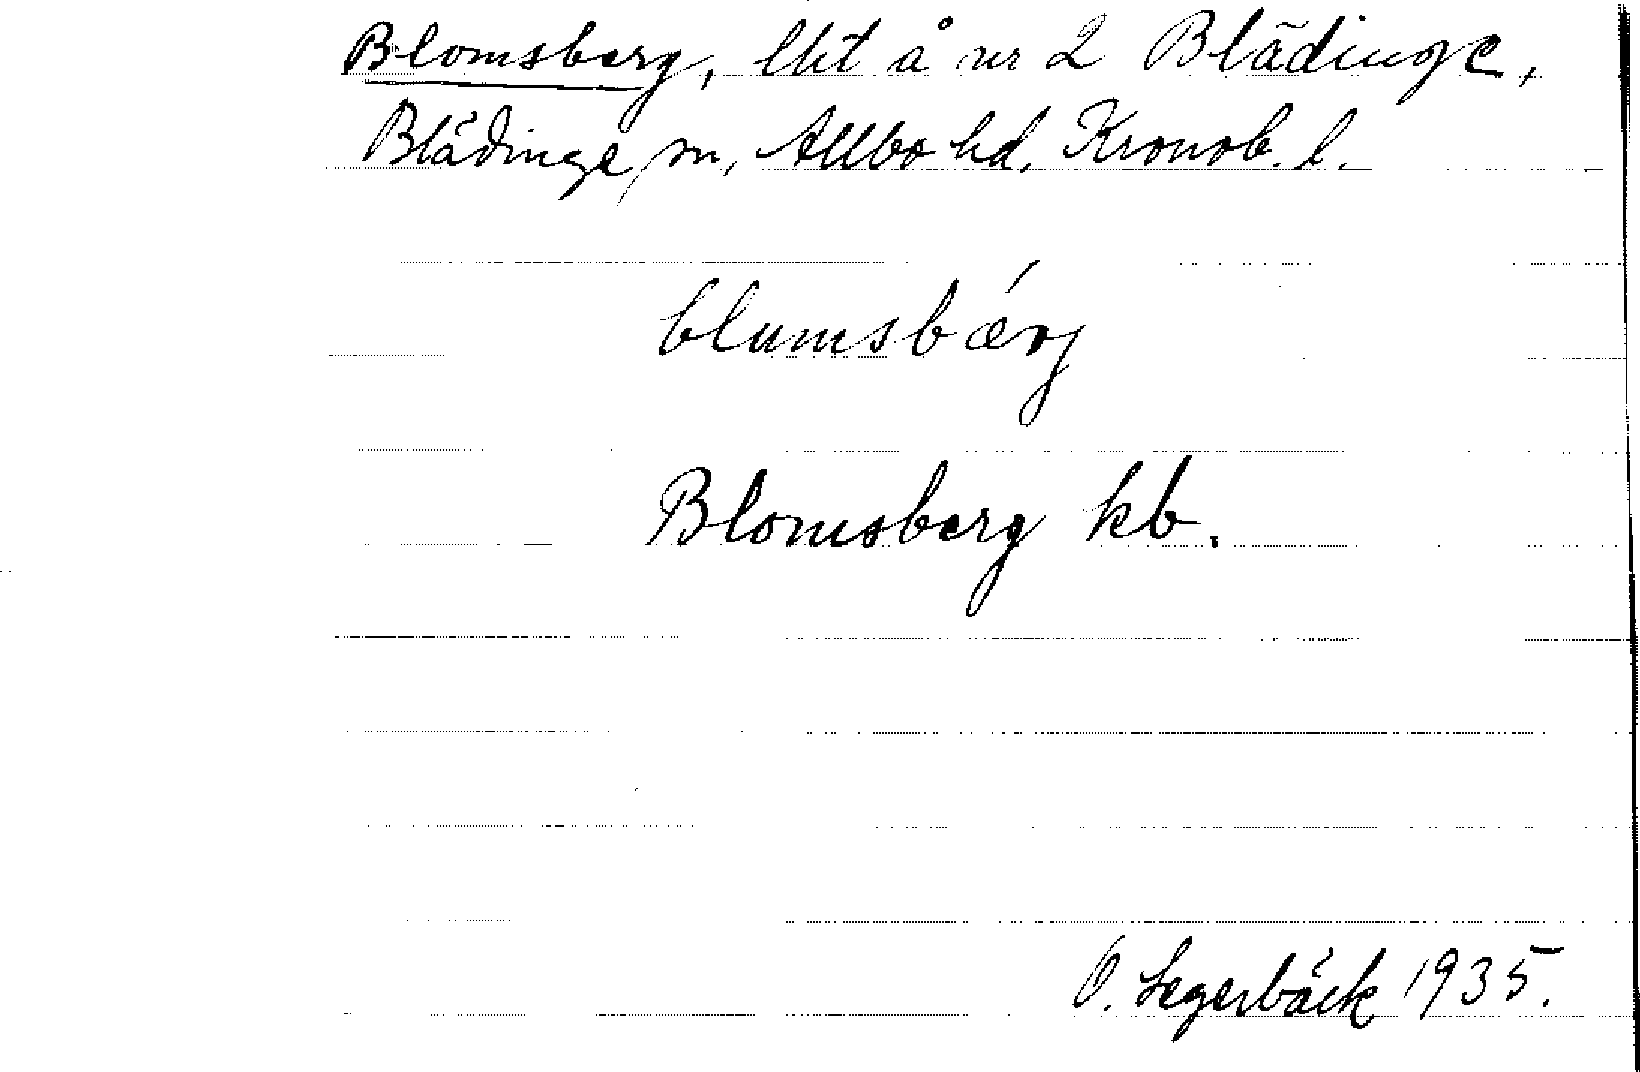 Blomsberg, lht å nr 2 Blädinge,
Blädinge sn, Allbo hd, Kronob. l.
blumsbǽrj
Blomsberg kb.
O. Segerbäck 1935.